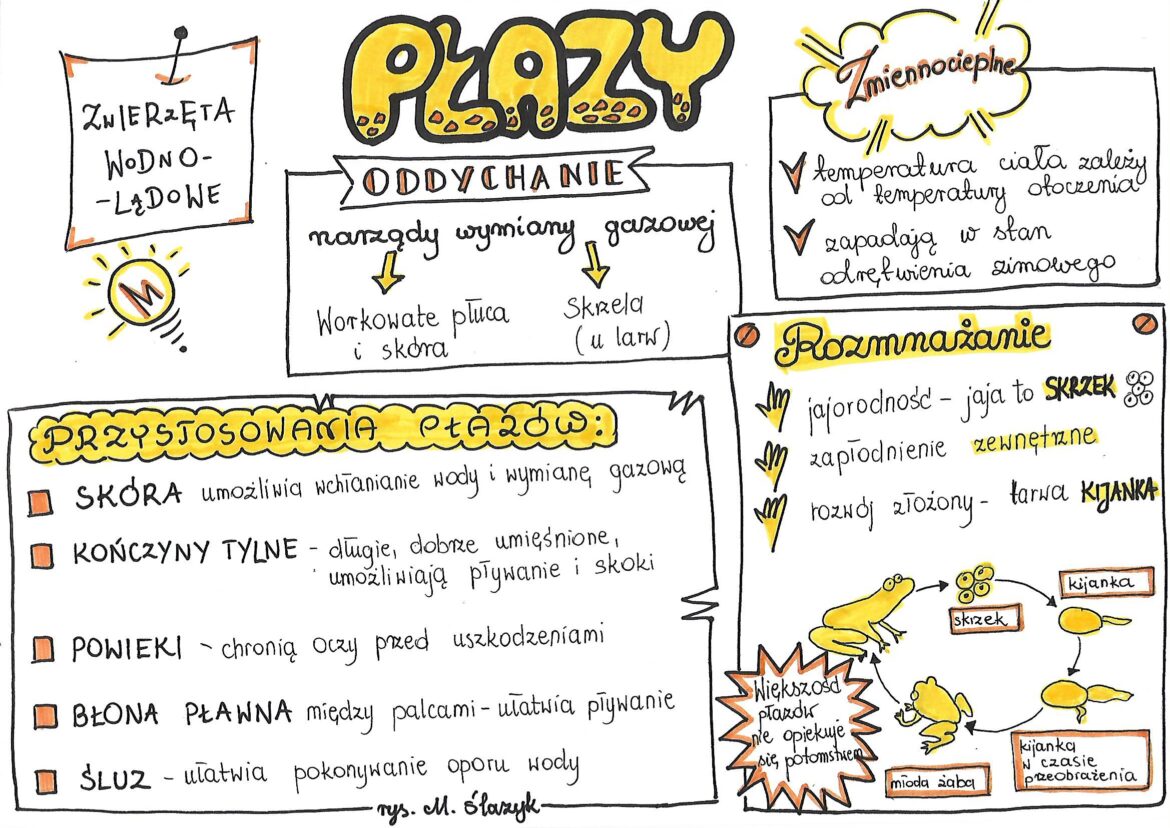 PŁAZY
ZWIERZĘTA
WODNO-
-LĄDOWE
M
ODDYCHANIE
narządy wymiany gazowej
Workowate płuca
i skóra
Skrzela
(u larw)
Zmiennocieplne
temperatura ciała zależy
od temperatury otoczenia
zapadają w stan
odrętwienia zimowego
PRZYSTOSOWANIA PŁAZÓW:
SKÓRA umożliwia wchłanianie wody i wymianę gazową
KOŃCZYNY TYLNE - długie, dobrze umięśnione,
umożliwiają pływanie i skoki
POWIEKI - chronią oczy przed uszkodzeniami
BŁONA PŁAWNA między palcami - ułatwia pływanie
ŚLUZ - ułatwia pokonywanie oporu wody
rys. M. Ślazyk
Rozmnażanie
jajorodność - jaja to SKRZEK
zapłodnienie zewnętrzne
rozwój złożony - larwa KIJANKA
skrzek
kijanka
kijanka
w czasie
przeobrażenia
młoda żaba
Większość
płazów
nie opiekuje
się potomstwem